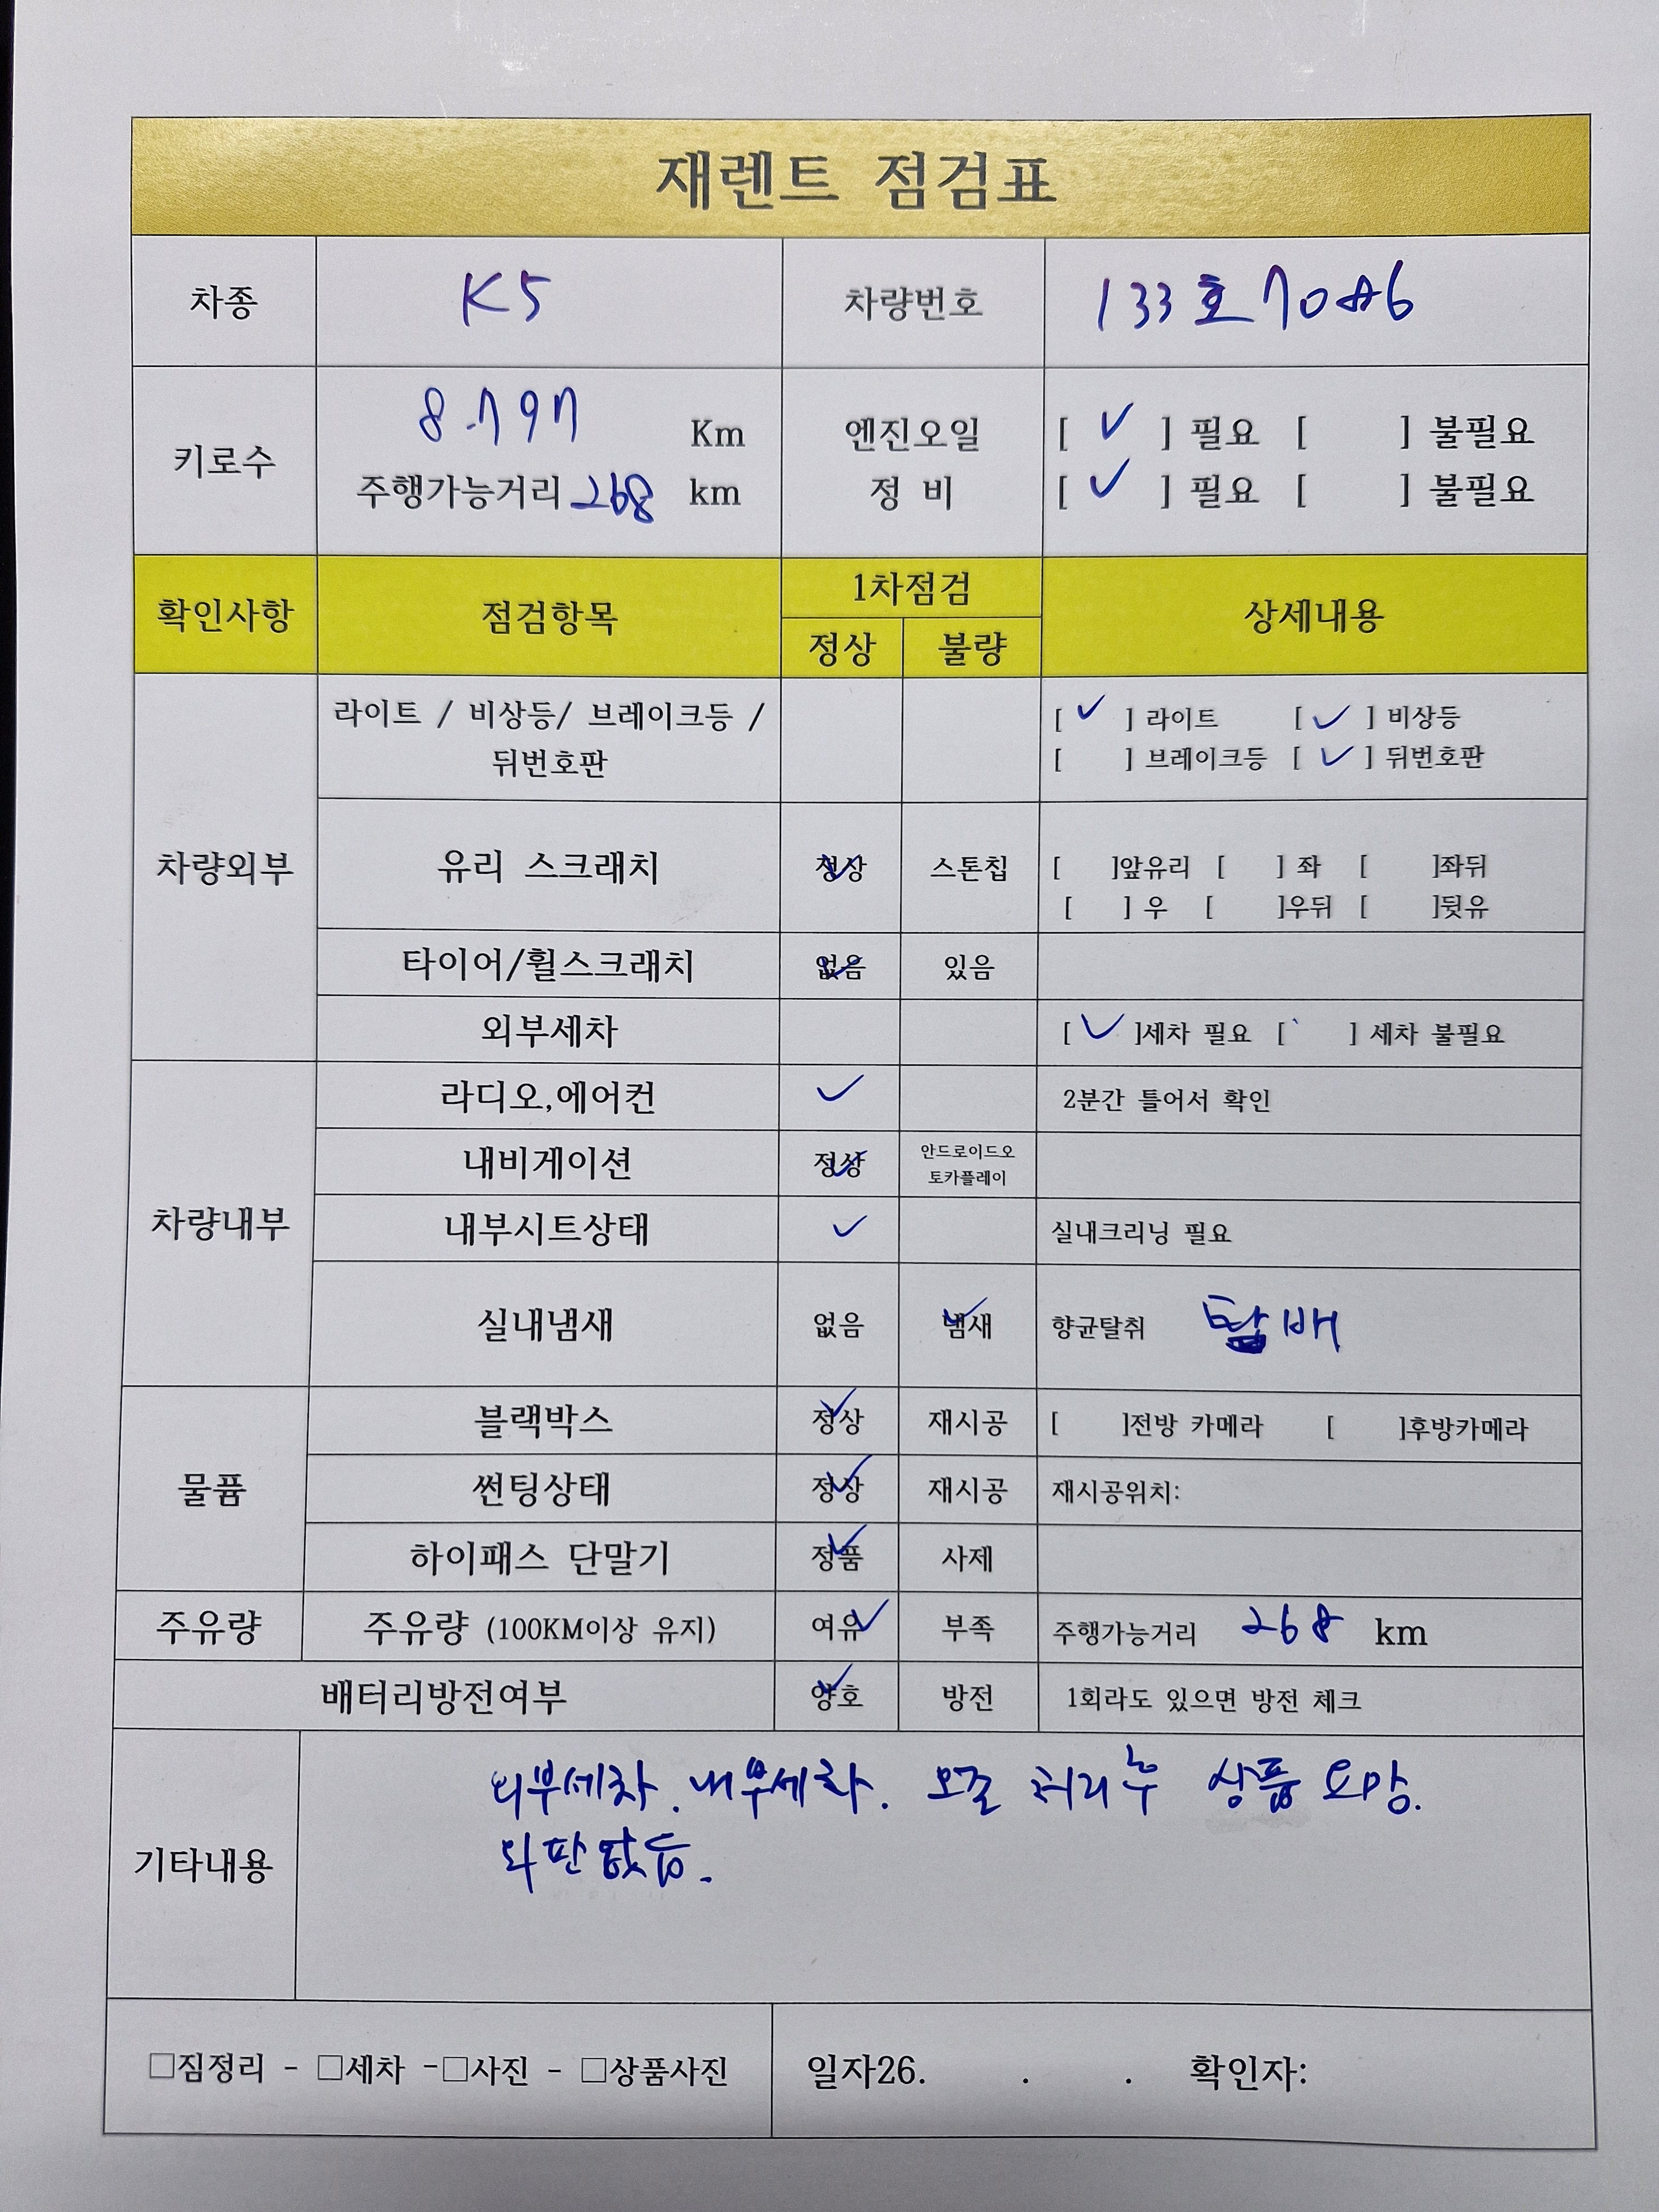 재렌트 점검표
차종 K5 차량번호 133호
키로수 8.797 Km 엔진오일 [ ✓ ] 필요 [ ] 불필요
주행가능거리 268 km 정 비 [ ✓ ] 필요 [ ] 불필요
확인사항 점검항목 1차점검 상세내용
정상 불량
차량외부
라이트 / 비상등/ 브레이크등 / [ ✓ ] 라이트 [ ✓ ] 비상등
뒤번호판 [ ] 브레이크등 [ ✓ ] 뒤번호판
유리 스크래치 정상 ✓ 스톤칩 [ ]앞유리 [ ] 좌 [ ]좌뒤
[ ] 우 [ ]우뒤 [ ]뒷유
타이어/휠스크래치 없음 ✓ 있음
외부세차 [ ✓ ]세차 필요 [ ] 세차 불필요
차량내부
라디오,에어컨 ✓ 2분간 틀어서 확인
내비게이션 정상 ✓ 안드로이드오
토카플레이
내부시트상태 ✓ 실내크리닝 필요
실내냄새 없음 냄새 ✓ 향균탈취
물퓸
블랙박스 정상 ✓ 재시공 [ ]전방 카메라 [ ]후방카메라
썬팅상태 정상 ✓ 재시공 재시공위치:
하이패스 단말기 정품 ✓ 사제
주유량 주유량 (100KM이상 유지) 여유 ✓ 부족 주행가능거리 268 km
배터리방전여부 양호 ✓ 방전 1회라도 있으면 방전 체크
기타내용
외부세차. 내부세차. 오존 처리후 상품 요망.
외판
□짐정리 - □세차 -□사진 - □상품사진 일자26. . . 확인자: